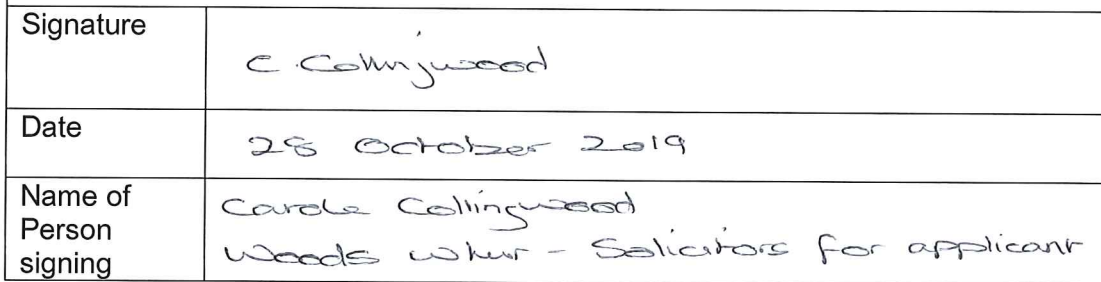 Signature
C. Collingwood
Date
28 October 2019
Name of
Person
signing
Carole Collingwood
Woods Whur - Solicitors for applicant